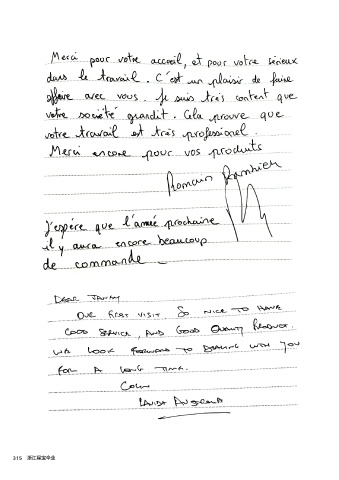 Merci pour votre accueil, et pour votre sérieux
dans le travail. C'est un plaisir de faire
affaire avec vous. Je suis très content que
votre société grandit. Cela prouve que
votre travail est très professionel.
Merci encore pour vos produits
Romain
J'espère que l'année prochaine
il y aura encore beaucoup
de commande
DEAR
OUR FIRST VISIT. SO NICE TO HAVE
GOOD SERVICE, AND GOOD QUALITY PRODUCT.
WE LOOK FORWARD TO DEALING WITH YOU
FOR A LONG TIME.
315 浙江屋宝伞业